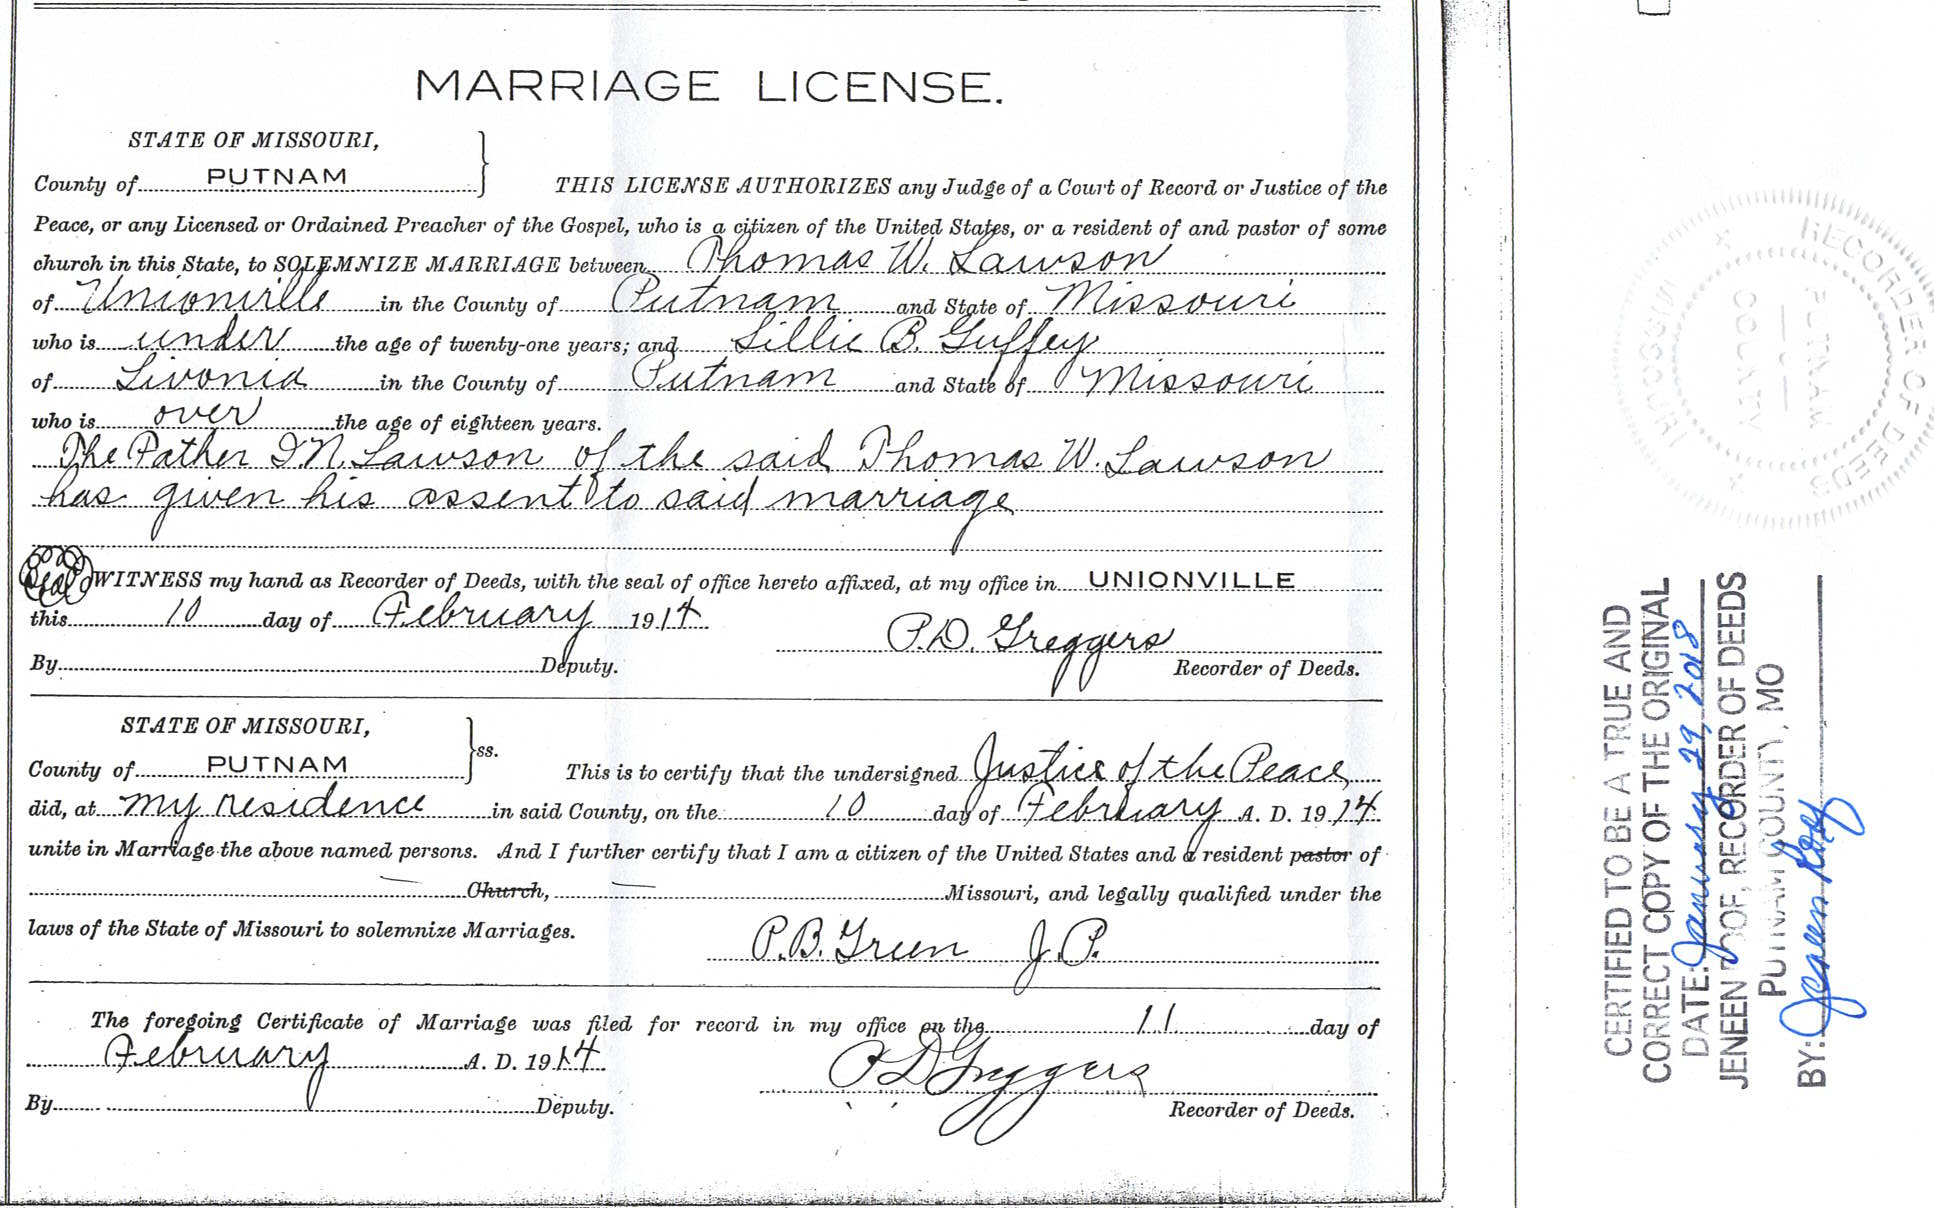 MARRIAGE LICENSE.
STATE OF MISSOURI,
County of PUTNAM
THIS LICENSE AUTHORIZES any Judge of a Court of Record or Justice of the
Peace, or any Licensed or Ordained Preacher of the Gospel, who is a citizen of the United States, or a resident of and pastor of some
church in this State, to SOLEMNIZE MARRIAGE between Thomas W. Lawson
of Unionville in the County of Putnam and State of Missouri
who is under the age of twenty-one years; and Lillie B. Guffey
of Livonia in the County of Putnam and State of Missouri
who is over the age of eighteen years.
The Father I N. Lawson of the said Thomas W. Lawson
has given his assent to said marriage
Seal WITNESS my hand as Recorder of Deeds, with the seal of office hereto affixed, at my office in UNIONVILLE
this 10 day of February 1914
P.D. Greggers
By Deputy. Recorder of Deeds.
STATE OF MISSOURI,
ss.
County of PUTNAM This is to certify that the undersigned Justice of the Peace
did, at my residence in said County, on the 10 day of February A. D. 1914
unite in Marriage the above named persons. And I further certify that I am a citizen of the United States and a resident pastor of
Church, Missouri, and legally qualified under the
laws of the State of Missouri to solemnize Marriages.
P.B. Green J.P.
The foregoing Certificate of Marriage was filed for record in my office on the 11 day of
February A. D. 1914
P D Greggers
By Deputy. Recorder of Deeds.
CERTIFIED TO BE A TRUE AND
CORRECT COPY OF THE ORIGINAL
DATE: January 29, 2018
JENEEN ROOF, RECORDER OF DEEDS
PUTNAM COUNTY, MO
BY: Jeneen Roof
RECORDER OF DEEDS
MISSOURI
PUTNAM
COUNTY